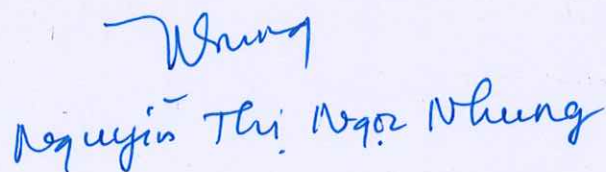 Nhung
Nguyễn Thị Ngọc Nhung